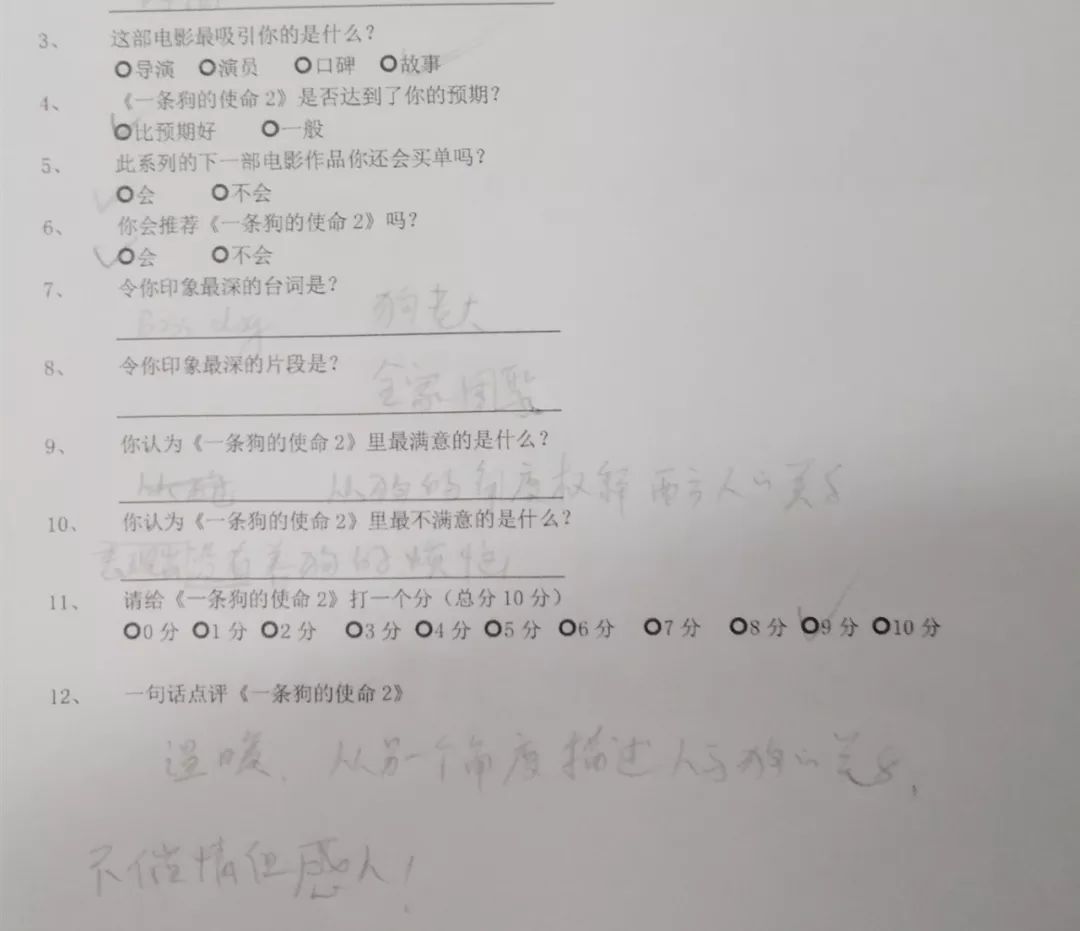 3、 这部电影最吸引你的是什么?
○导演 ○演员 ○口碑 ○故事
4、 《一条狗的使命 2》是否达到了你的预期?
○比预期好 ○一般
5、 此系列的下一部电影作品你还会买单吗?
○会 ○不会
6、 你会推荐《一条狗的使命 2》吗?
○会 ○不会
7、 令你印象最深的台词是?
Boss dog 狗老大
8、 令你印象最深的片段是?
全家团聚
9、 你认为《一条狗的使命 2》里最满意的是什么?
从狗的角度 人的关系
10、 你认为《一条狗的使命 2》里最不满意的是什么?
没有养狗的烦恼
11、 请给《一条狗的使命 2》打一个分（总分 10 分）
○0 分 ○1 分 ○2 分 ○3 分 ○4 分 ○5 分 ○6 分 ○7 分 ○8 分 ○9 分 ○10 分
12、 一句话点评《一条狗的使命 2》
温暖、从另一个角度描述人与狗的关系,
不催情但感人!